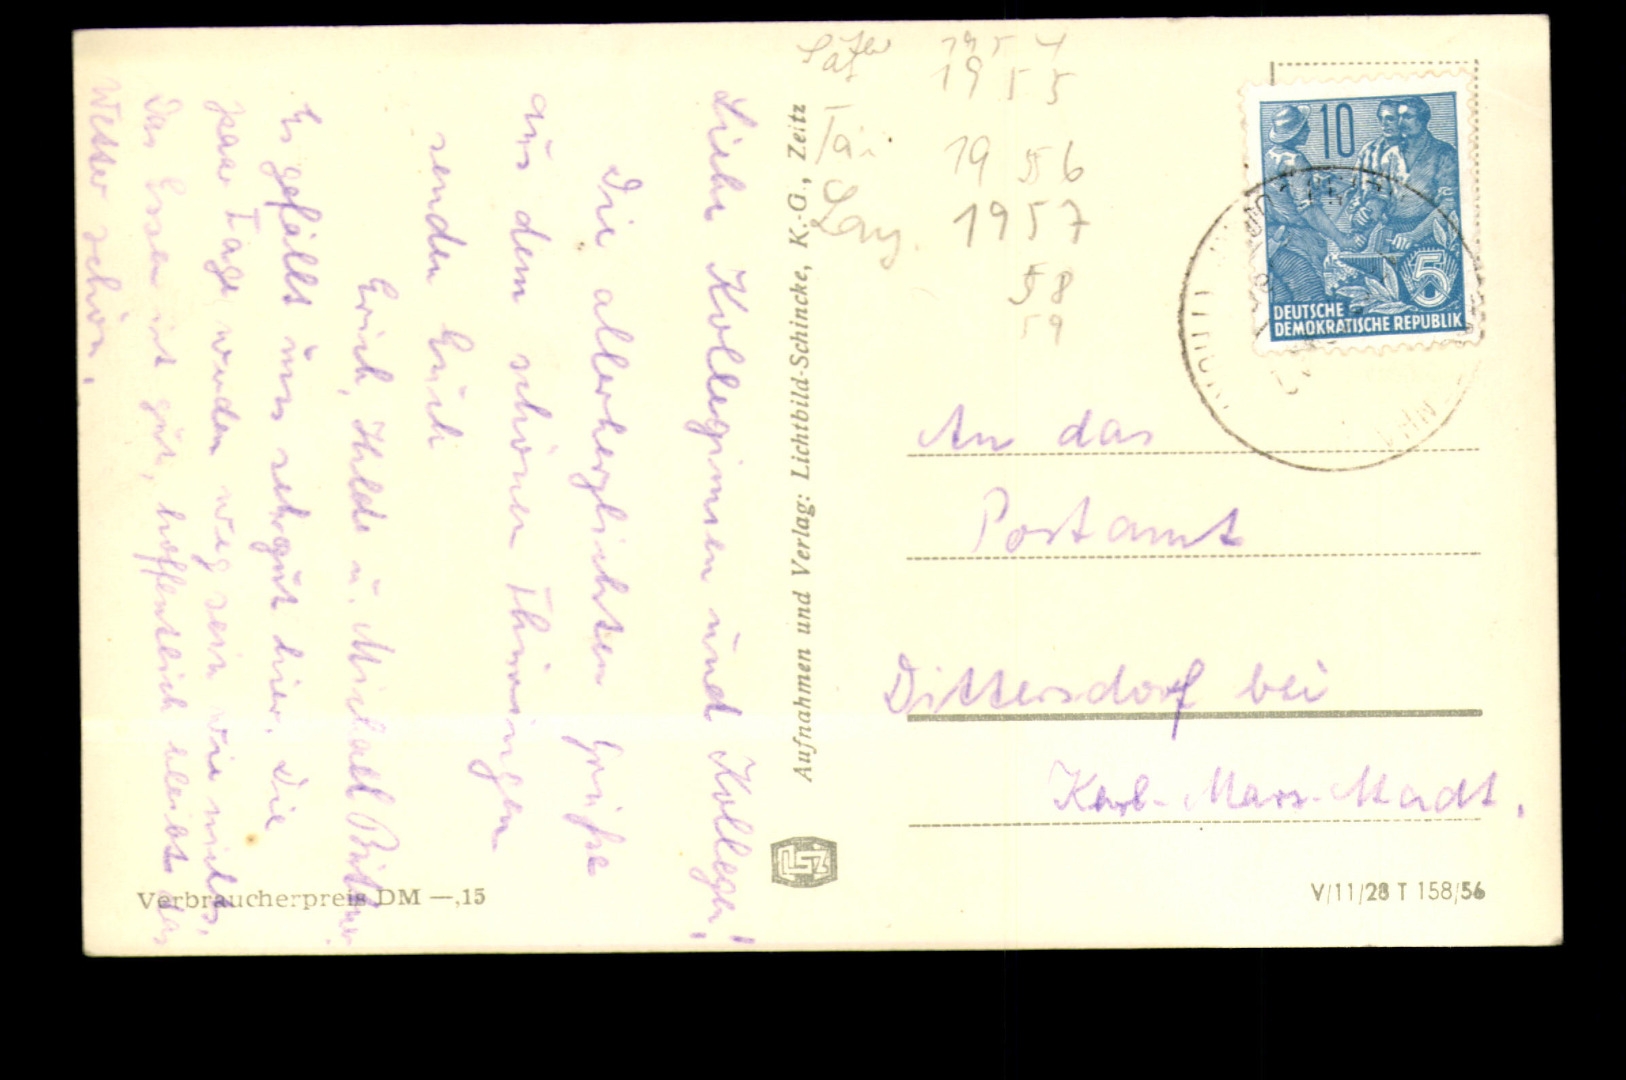 Liebe Kolleginnen und Kollegen!
Die allerherzlichsten Grüße
aus dem schönen Thüringen
senden Euch
Erich, Hilde u. Michael
Es gefällt uns sehr gut hier. Die
paar Tage werden weg sein wie nichts.
Das Essen ist gut, hoffentlich bleibt das
Wetter schön.
Verbraucherpreis DM —,15
Aufnahmen und Verlag: Lichtbild-Schincke, K.-G., Zeitz
LSZ
1954
1955
1956
1957
58
59
10
5
DEUTSCHE
DEMOKRATISCHE REPUBLIK
An das
Postamt
Dittersdorf bei
Karl-Marx-Stadt.
V/11/28 T 158/56